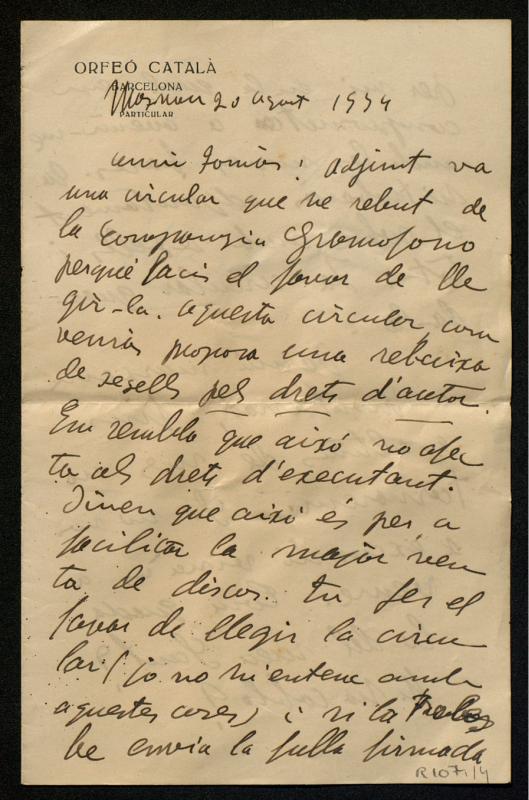 ORFEÓ CATALÀ
BARCELONA
PARTICULAR
20 agost 1934
Amic Tomàs: adjunt va
una circular que he rebut de
la Companyia Gramofono
perquè facis el favor de lle
gir-la. aquesta circular, com
veuràs proposa una rebaixa
de segells pels drets d'autor.
Em sembla que això no afec
ta als drets d'executant.
Diuen que això és per a
facilitar la major ven
ta de discos. Tu fes el
favor de llegir la circu
lar (jo no hi entenc amb
aquestes coses) i si la trobes
be envia la fulla firmada
R107/4